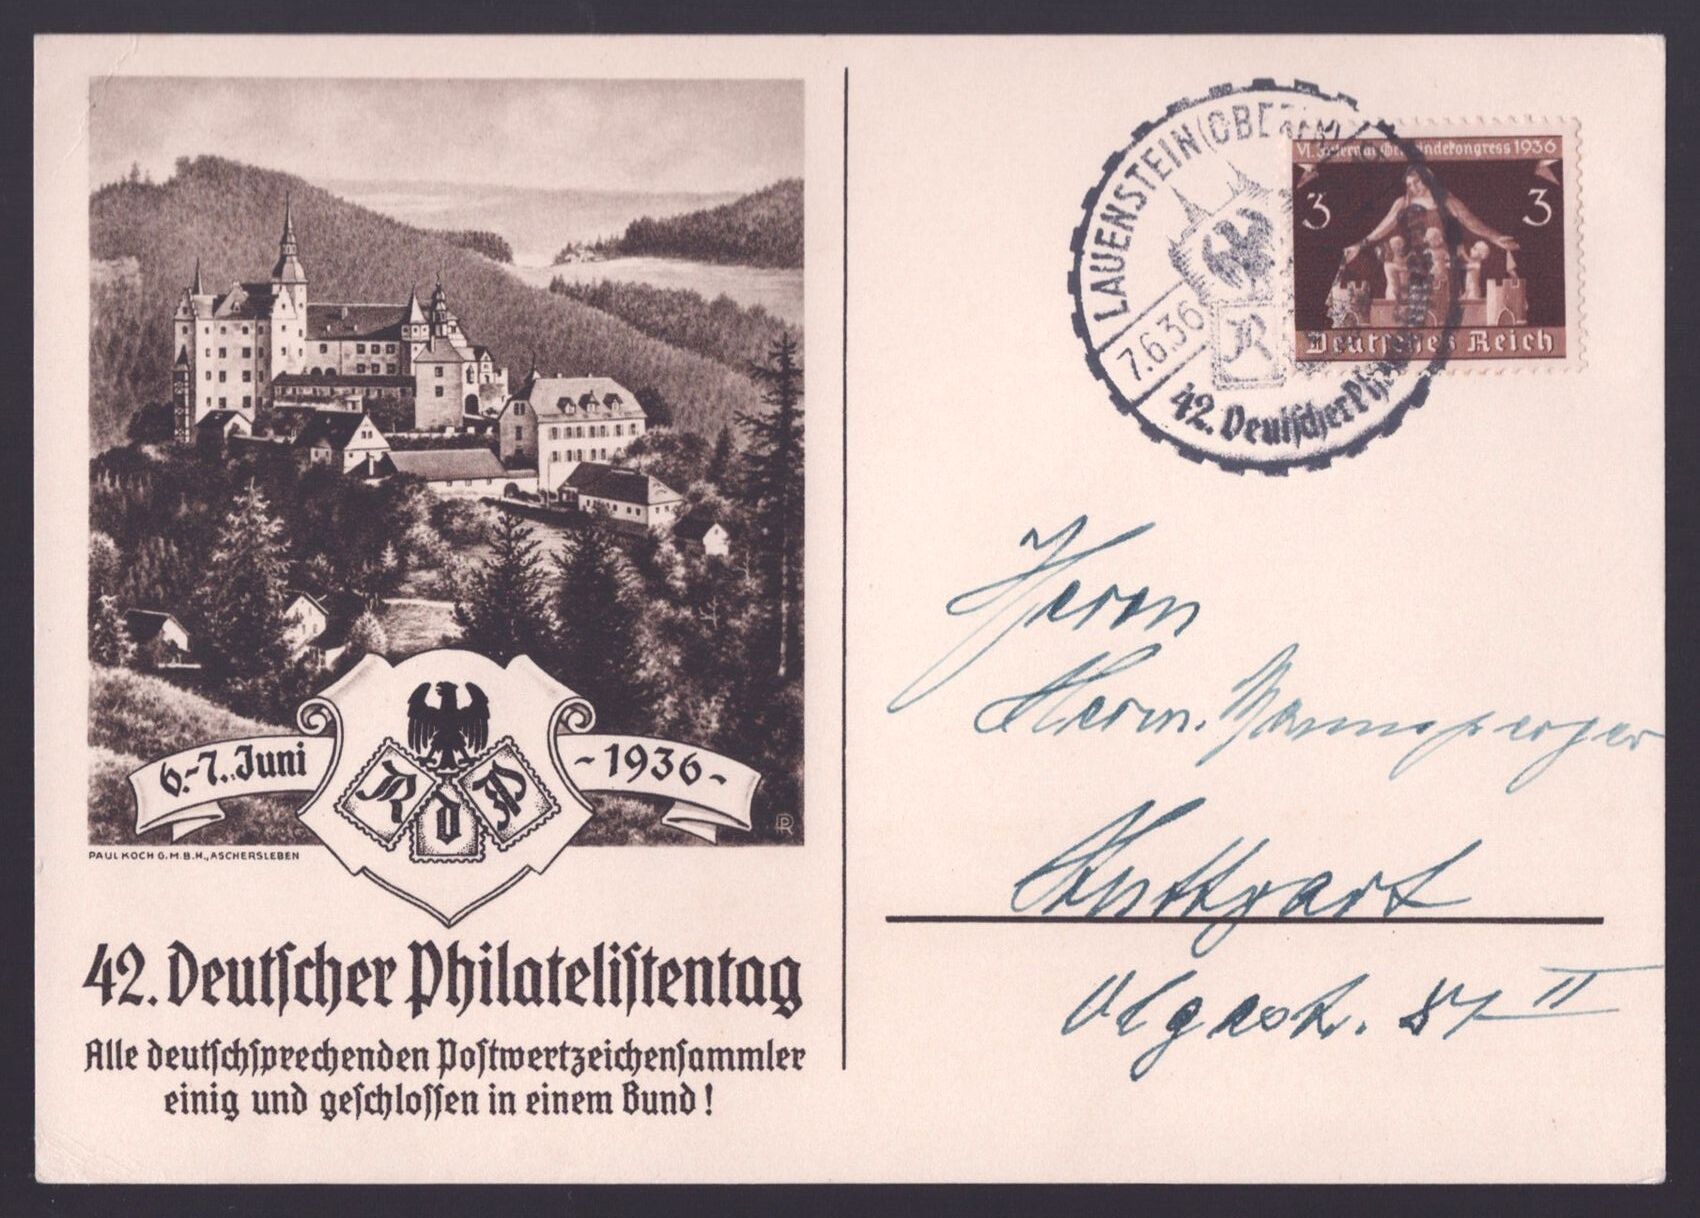 6.-7. Juni
- 1936 -
R d P
PR
PAUL KOCH G.M.B.H., ASCHERSLEBEN
42. Deutscher Philatelistentag
Alle deutschsprechenden Postwertzeichensammler
einig und geschlossen in einem Bund!
LAUENSTEIN (OBERFR)
7.6.36
R
42. Deutscher
VI. Internat. Gemeindekongress 1936
3 3
Deutsches Reich
Herrn
Herm.
Stuttgart
Olgastr. 87 II